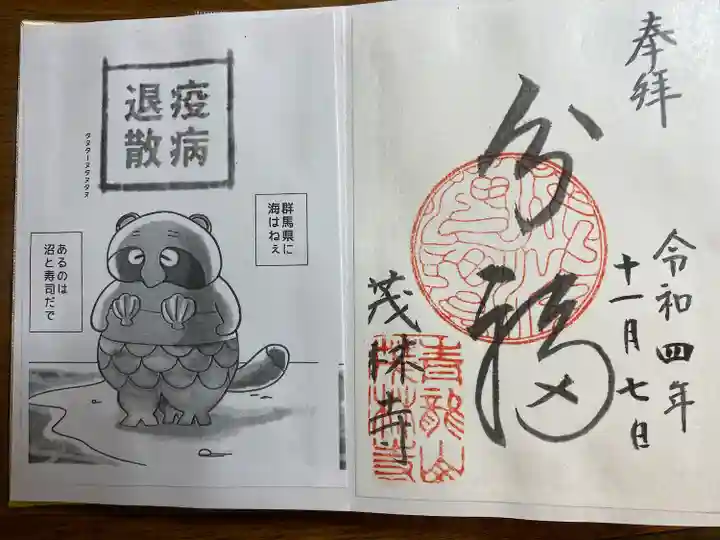 疫病
退散
タヌターヌタヌタヌ
群馬県に
海はねぇ
あるのは
沼と寿司だで
奉拝
分福
令和四年
十一月七日
茂林寺
青龍山
茂林寺